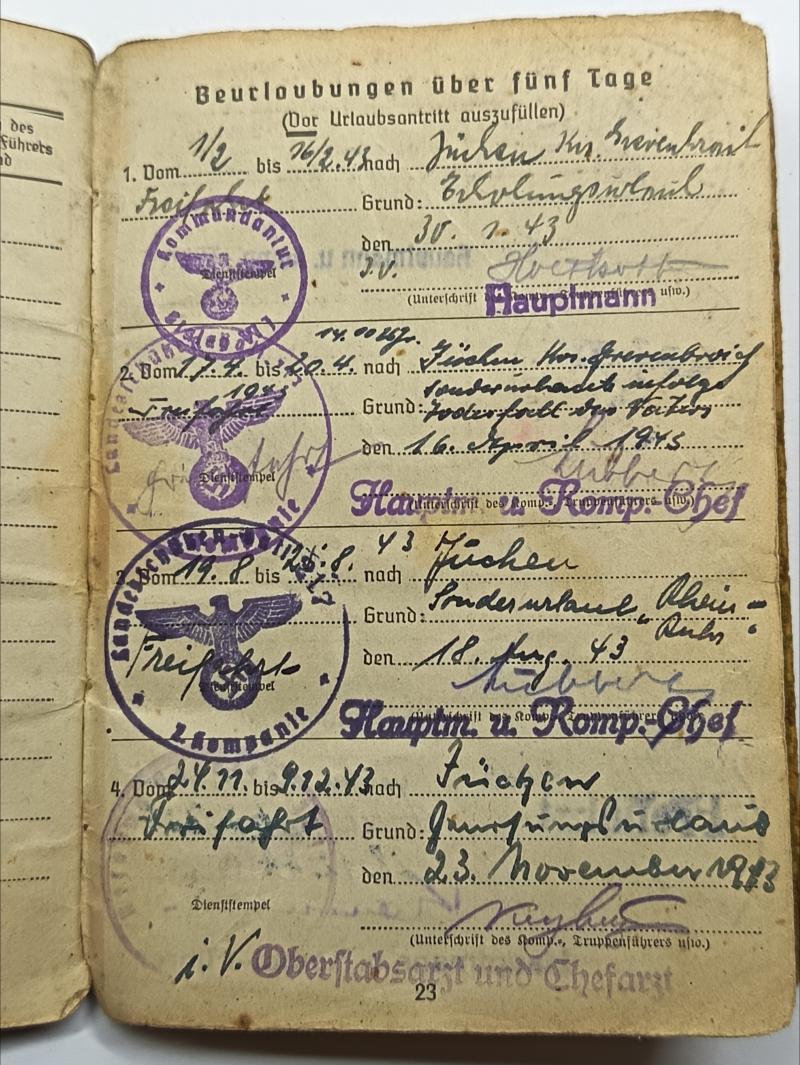 des
Führers
nd
Beurlaubungen über fünf Tage
(Vor Urlaubsantritt auszufüllen)
1. Vom 1/2 bis 16/2.43 nach Jüchen Krs. Grevenbroich
Freifahrt Grund: Erholungsurlaub
Kommandantur
den 30. 1. 43
Dienststempel
I.V.
(Unterschrift des Komp., Truppenführers usw.)
Hauptmann
14.00 Uhr
2. Vom 17.4. bis 20.4. nach Jüchen Krs. Grevenbroich
1943 Sonderurlaub infolge
Freifahrt Grund: Todesfall des Vaters
den 16. April 1943
Dienststempel
Lübbert
(Unterschrift des Komp., Truppenführers usw.)
Hauptm. u. Komp.-Chef
Kompanie
3. Vom 19.8 bis 28.8. 43 nach Jüchen
Grund: Sonderurlaub „Rhein-
Ruhr“
Freifahrt den 18. Aug. 43
Dienststempel
Lübbert
(Unterschrift des Komp., Truppenführers usw.)
Hauptm. u. Komp.-Chef
2. Kompanie
4. Vom 24.11. bis 9.12.43 nach Jüchen
Freifahrt Grund: Genesungsurlaub
den 23. November 1943
Dienststempel
(Unterschrift des Komp., Truppenführers usw.)
i. V. Oberstabsarzt und Chefarzt
23